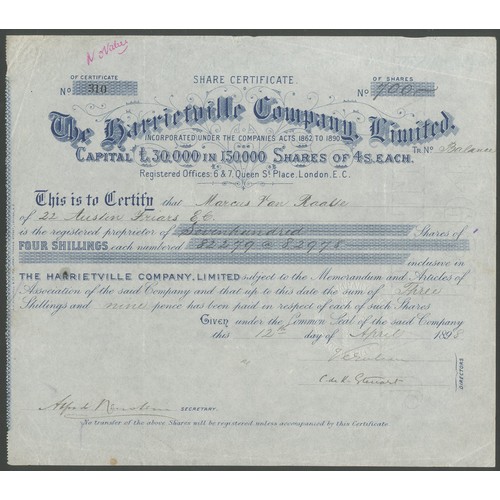 No Value
SHARE CERTIFICATE.
OF CERTIFICATE
No 310
OF SHARES
No 700
The Harrietville Company, Limited.
INCORPORATED UNDER THE COMPANIES ACTS 1862 TO 1890.
TR. No Balance
CAPITAL £30,000 IN 150,000 SHARES OF 4S. EACH.
Registered Offices: 6 & 7, Queen St. Place, London. E.C.
This is to Certify that Marcus Van Raalte
of 22 Austen Friars E.C.
is the registered proprietor of Seven hundred Shares of
FOUR SHILLINGS each numbered 82279 @ 82978
inclusive in
THE HARRIETVILLE COMPANY, LIMITED subject to the Memorandum and Articles of
Association of the said Company and that up to this date the sum of Three
Shillings and nine pence has been paid in respect of each of such Shares
Given under the Common Seal of the said Company
this 12th day of April 1898
C de B. Stewart
DIRECTORS
SECRETARY.
No transfer of the above Shares will be registered unless accompanied by this Certificate